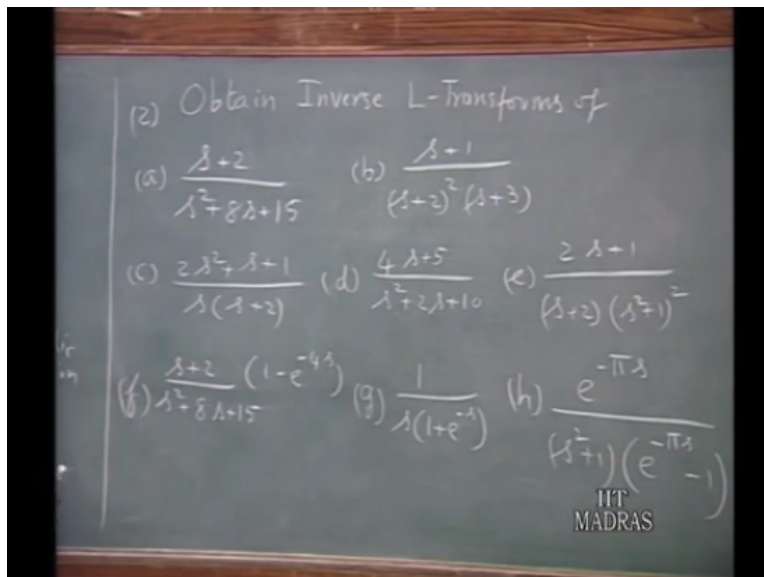 (2) Obtain Inverse L-Transforms of
(a) (s+2)/(s²+8s+15) (b) (s+1)/((s+2)²(s+3))
(c) (2s²+s+1)/(s(s+2)) (d) (4s+5)/(s²+2s+10) (e) (2s+1)/((s+2)(s²+1)²)
(f) (s+2)/(s²+8s+15) (1-e^{-4s}) (g) 1/(s(1+e^{-s})) (h) e^{-πs}/((s²+1)(e^{-πs}-1))
IIT
MADRAS